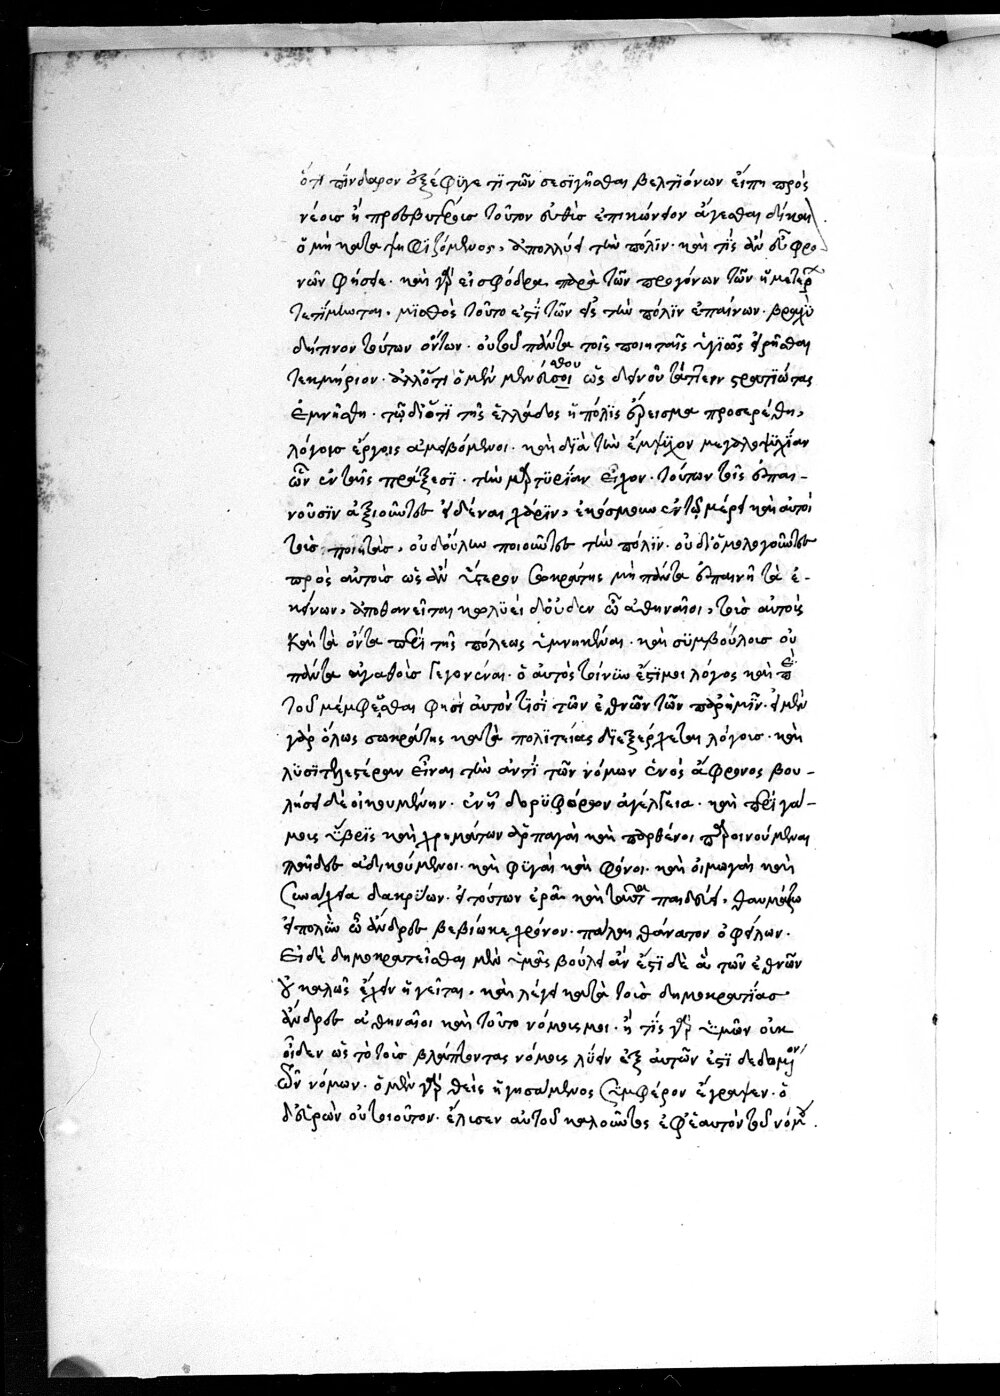 ὅτι πίνδαρον ἐξέφυγέ τι τῶν σεσιγῆσθαι βελτιόνων εἴπῃ πρὸς
νέοις ἢ πρεσβυτέροις τοῦτον εὐθὺς ἐπικώνειον ἄγεσθαι δίκαι
ὁ μὴ καταψηφιζόμενος, ἀπολλύει τὴν πόλιν. καὶ τίς ἂν εὖ φρο
νῶν φήσειε. καὶ γὰρ εἰ σφόδρα παρὰ τῶν προγόνων τῶν ἡμετέρων
τετίμωται, μισθὸς τοῦτο ἐστὶ τῶν εἰς τὴν πόλιν ἐπαίνων. βραχὺ
δείπνον τούτων ὄντων. οὕτω πάντα τοῖς ποιηταῖς ὑγιῶς εἰρῆσθαι
τεκμήριον. ἀλλ' ὅτι ὁ μὲν μενεσθου ὡς δεινοῦ τάττειν στρατιώτας
ἐμνήσθη. τῷ διότι τῆς ἑλλάδος ἡ πόλις ἔρεισμα προσερέθη,
λόγοις ἔργοις ἀμειβόμενοι. καὶ διὰ τὴν ἔμψυχον μεγαλοψυχίαν
ὧν ἐν ταῖς πράξεσι. τὴν μαρτυρίαν εἶχον. τούτων τοῖς ἐπαι-
νοῦσιν ἀξιοῦντες εἰδέναι χάριν, ἐκόσμουν ἐν τῷ μέρει καὶ αὐτοὶ
τοὺς ποιητὰς, οὐ δούλην ποιοῦντες τὴν πόλιν. οὐδ' ὁμολογοῦντες
πρὸς αὐτοὺς ὡς ἂν ὕστερον σωκράτης μὴ πάντα ἐπαινῇ τὰ ἐ-
κείνων, ἀποθανεῖται κωλύει δ' οὐδὲν ὦ ἀθηναῖοι, τοὺς αὐτοὺς
καὶ τὰ ὄντα περὶ τῆς πόλεως ὑμνηκέναι. καὶ συμβούλους οὐ
πάντα ἀγαθοὺς γεγονέναι. ὁ αὐτὸς τοίνυν ἔστι μοι λόγος καὶ περὶ
τοῦ μέμφεσθαι φησὶ αὐτόν τισὶ τῶν ἐθνῶν τῶν παρ' ἡμῖν. εἰ μὲν
γὰρ ὅλως σωκράτης κατὰ πολιτείας διεξέρχεται λόγοις. καὶ
λυσιτελέστερον εἶναι τὴν ἀντὶ τῶν νόμων ἑνὸς ἄφρονος βου-
λήσει διοικουμένην. ἐν ᾗ δορυφόρων ἀγέλεια. καὶ περὶ γά-
μους ὕβρις καὶ χρημάτων ἁρπαγαὶ καὶ παρθένοι παροινούμεναι
παῖδες ἀδικούμενοι. καὶ φυγαὶ καὶ φόνοι. καὶ οἰμωγαὶ καὶ
συναλγία δακρύων. εἰ τούτων ἐρᾷ καὶ ταῦτα παιδεύει, θαυμάζω
εἰ πολὺν ὦ ἄνδρες βεβίωκε χρόνον. πάλαι θάνατον ὀφείλων.
Εἰ δὲ δημοκρατεῖσθαι μὲν ὑμᾶς βούλει ἂν ἔστι δὲ ἃ τῶν ἐθνῶν
οὐ καλῶς ἔχειν ἡγεῖται. καὶ λέγει κατὰ τοὺς δημοκρατίας
ἄνδρες ἀθηναῖοι καὶ τοῦτο νόμοις μοι. ἢ τίς γὰρ ὑμῶν οὐκ
οἶδεν ὡς τὸ τοὺς βλάπτοντας νόμους λύειν ἐξ αὐτῶν ἐστὶ δεδομένον
ὧν νόμων. ὁ μὲν γὰρ θεὶς ἡγησάμενος συμφέρον ἔγραψεν. ὁ
δ' εὑρὼν οὐ τοιοῦτον. ἔλυσεν αὐτοῦ καλοῦντος ἐφ' ἑαυτὸν τοῦ νόμου.